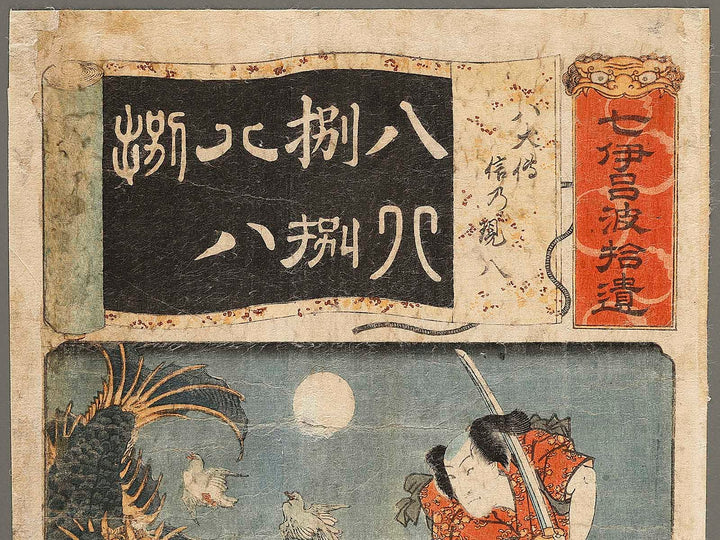 七伊呂波拾遺
八犬傳
信乃 現八
八
捌
八
捌
八
捌
八